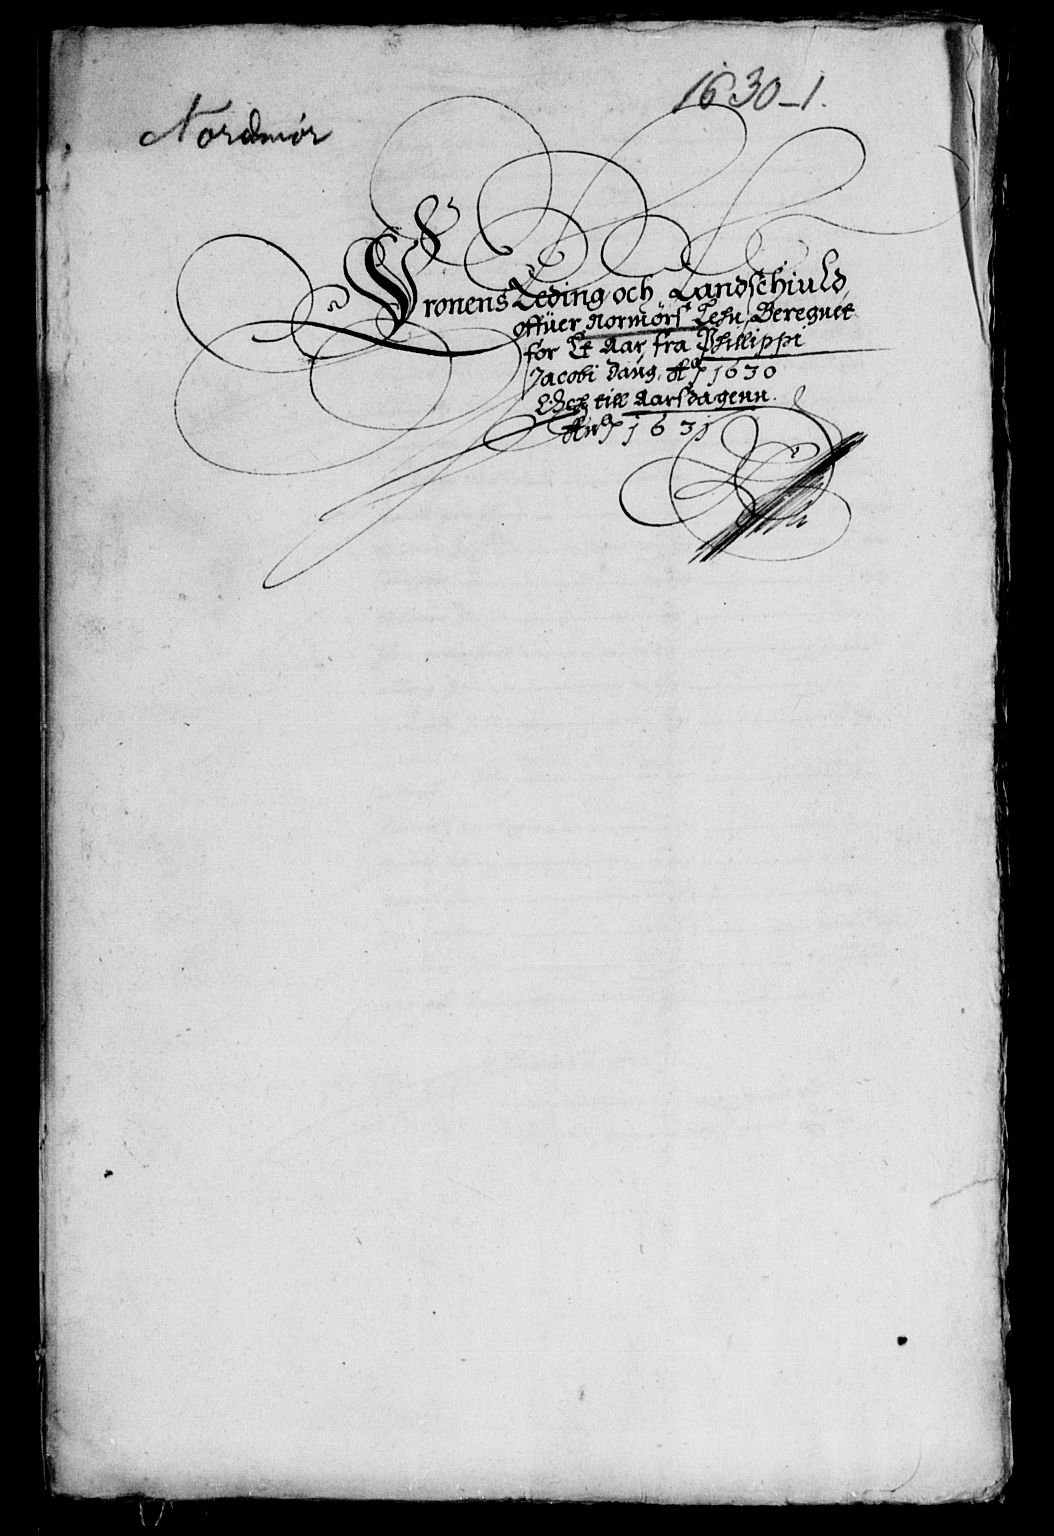 1630-1.
Nordmør
Cronens Leding och Landschiuld
offuer Normörs Lehn, Beregnet
for Et Aar, fra Phillippi
Jacobi Daug. Aō 1630
till Aarsdagenn.
Aō 1631